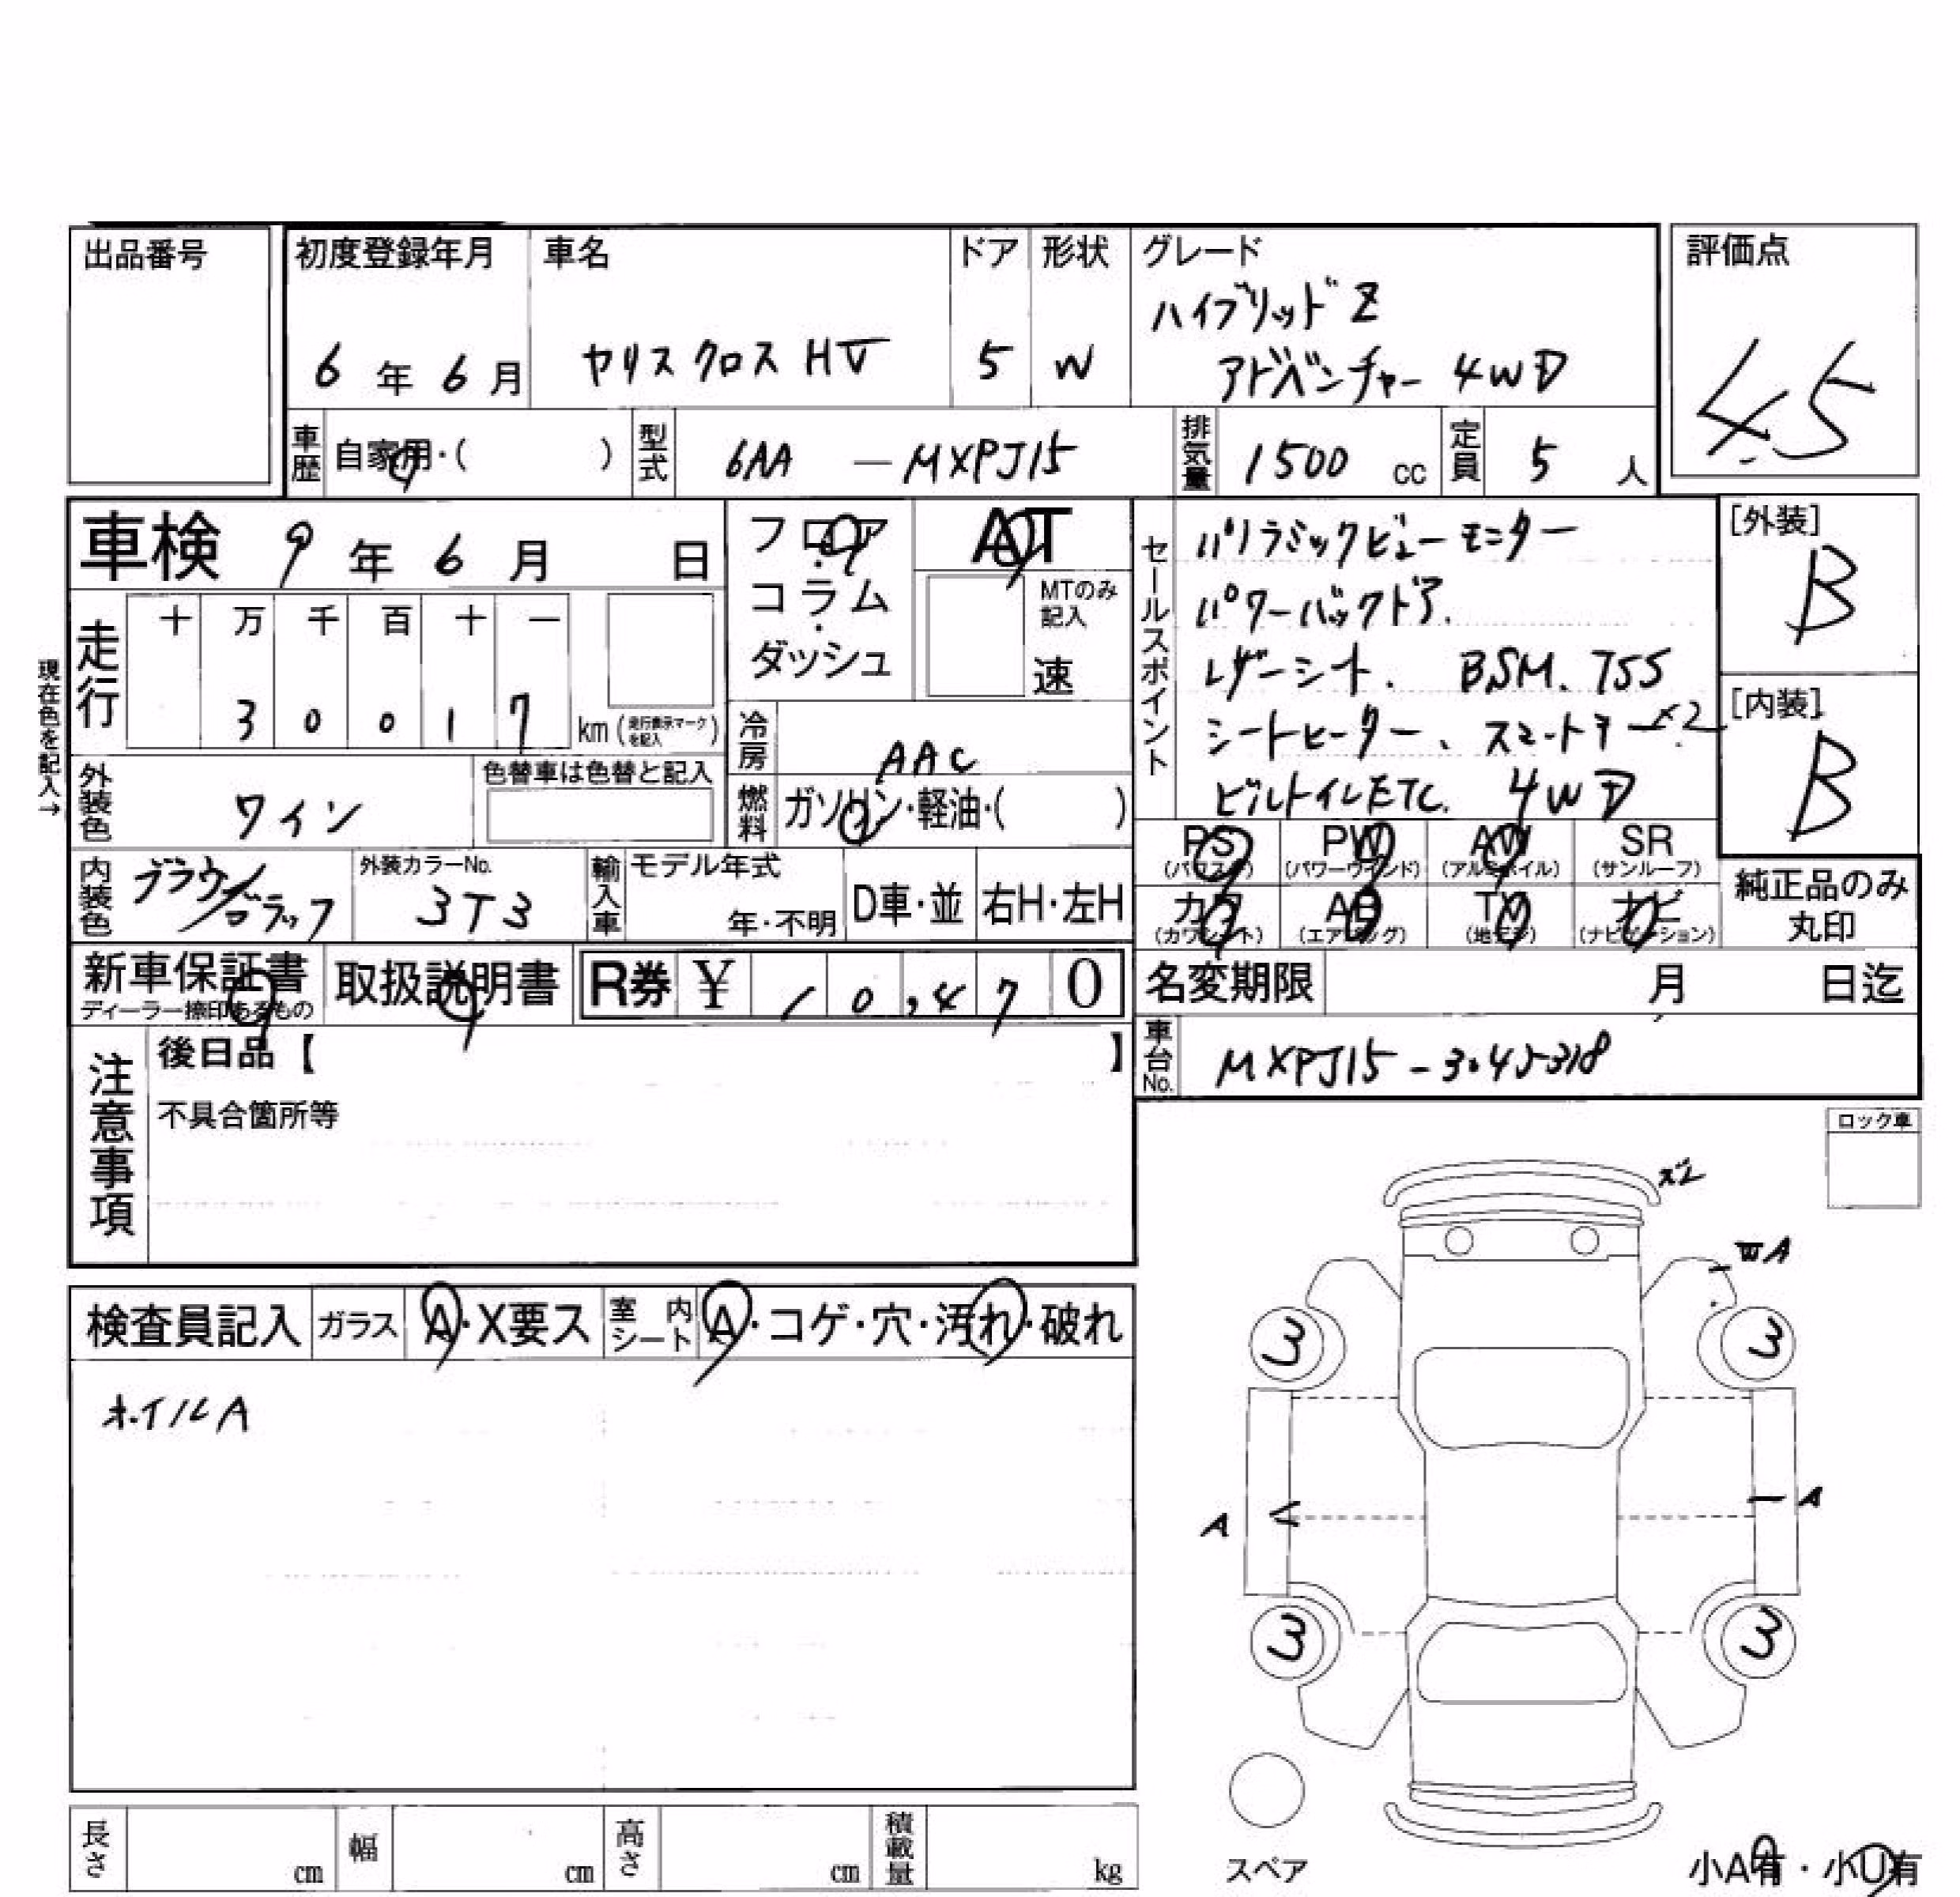 出品番号
初度登録年月
6年6月
車名
ヤリスクロス HV
ドア
5
形状
W
グレード
ハイブリッドZ
アドベンチャー 4WD
評価点
4.5
車歴
自家用・( )
型式
6AA - MXPJ15
排気量
1500 cc
定員
5 人
車検 9年6月 日
走行
十 万 千 百 十 一
3 0 0 1 7
km(走行表示マークを記入)
現在色を記入→
外装色
ワイン
色替車は色替と記入
内装色
ブラウン/ブラック
外装カラーNo.
3T3
フロア・
コラム・
ダッシュ
AT
MTのみ記入
速
冷房
AAC
燃料
ガソリン・軽油・( )
輸入車
モデル年式
年・不明
D車・並
右H・左H
セールスポイント
パノラミックビューモニター
パワーバックドア.
レザーシート. BSM. TSS
シートヒーター、スマートキー×2
ビルトインETC. 4WD
[外装]
B
[内装]
B
PS
(パワステ)
PW
(パワーウインド)
AW
(アルミホイル)
SR
(サンルーフ)
カワ
(カワシート)
AB
(エアバッグ)
TV
(地デジ)
ナビ
(ナビゲーション)
純正品のみ
丸印
新車保証書
ディーラー捺印あるもの
取扱説明書
R券 ¥ 10,470
名変期限 月 日迄
車台No.
MXPJ15-3045318
注意事項
後日品【 】
不具合箇所等
ロック車
検査員記入
ガラス
A・X要ス
室内シート
A・コゲ・穴・汚れ・破れ
ホイルA
WA
3
3
A
A
3
3
スペア
小A有・小U有
長さ cm
幅 cm
高さ cm
積載量 kg